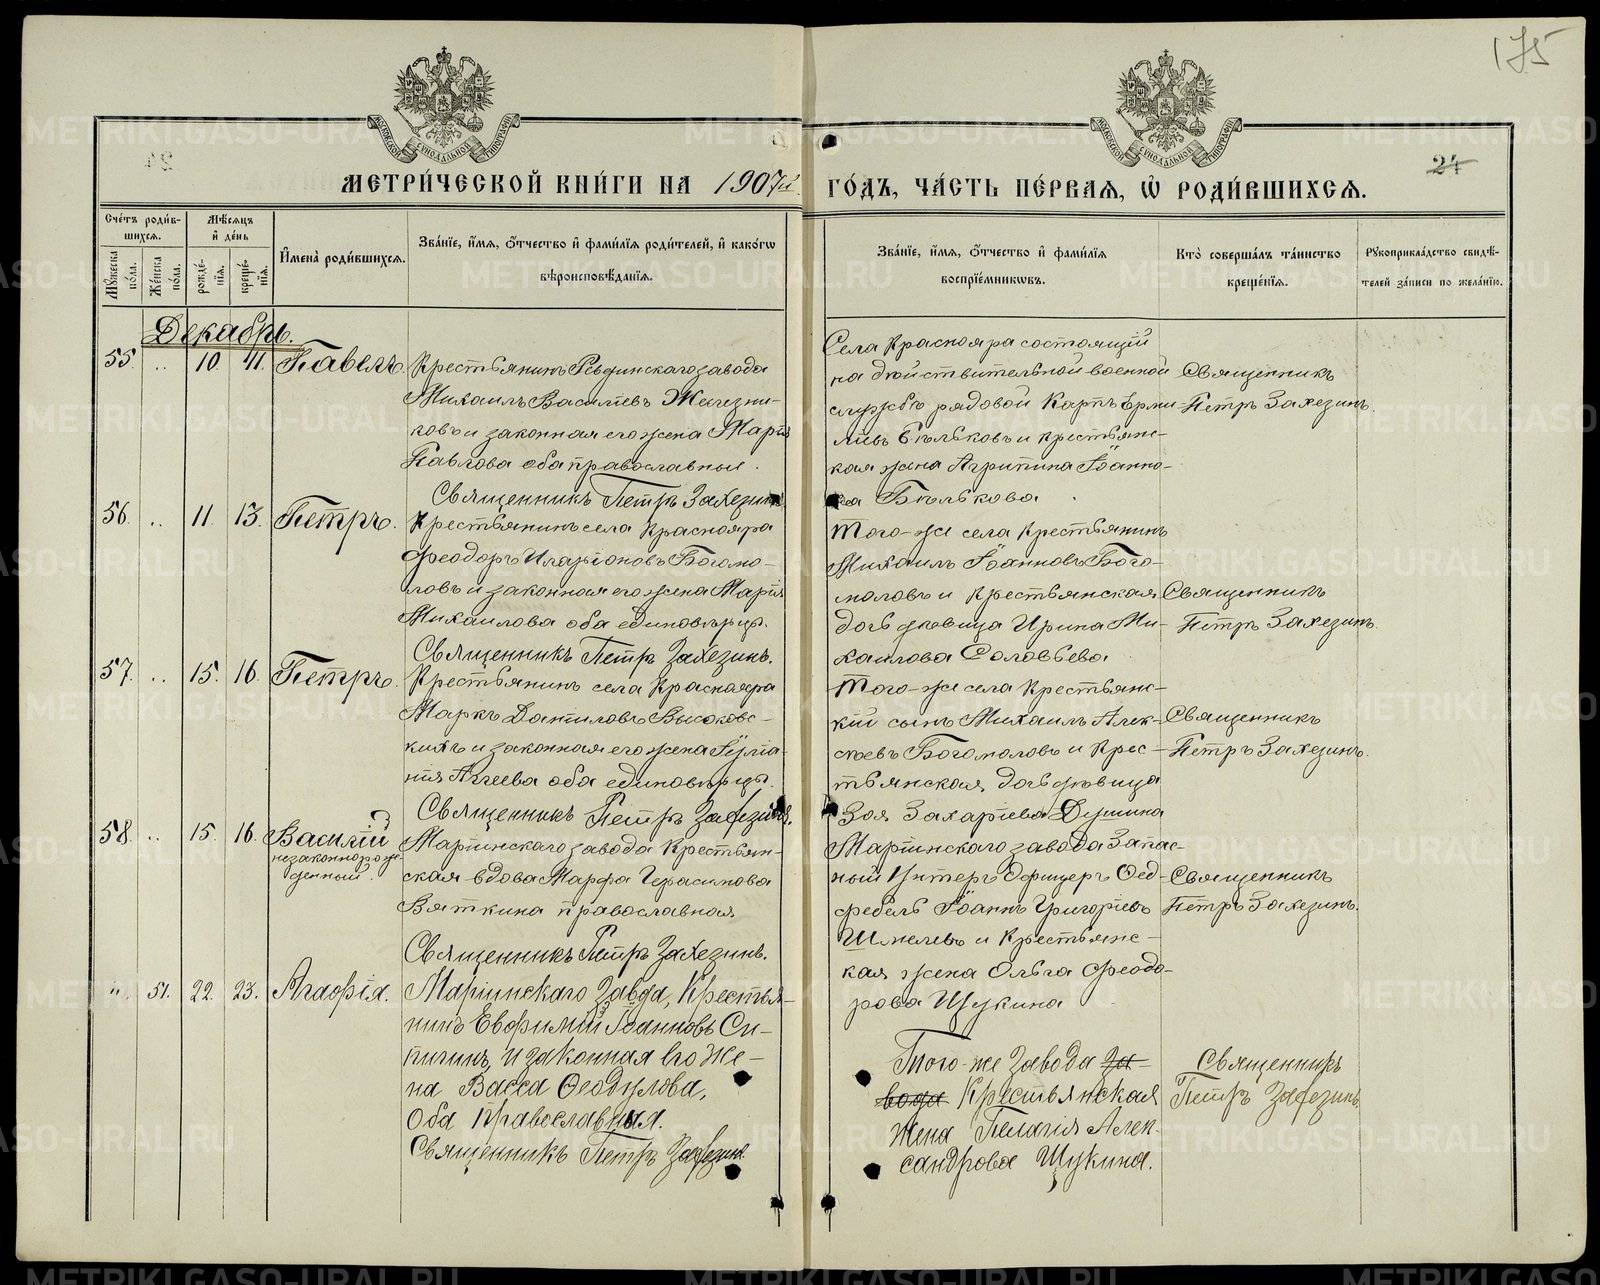 175
24
МЕТРИЧЕСКОЙ КНИГИ НА 1907й
ГОДЪ, ЧАСТЬ ПЕРВАЯ, Ѡ РОДИВШИХСЯ.
Счетъ родив-
шихся.
Мужеска пола.
Женска пола.
Мѣсяцъ
и день
рожде-
нія.
креще-
нія.
Имена родившихся.
Званіе, имя, отчество и фамилія родителей, и какогѡ
вѣроисповѣданія.
Званіе, имя, отчество и фамилія
воспріемниковъ.
Кто совершалъ таинство
крещенія.
Рукоприкладство свидѣ-
телей записи по желанію.
Декабрь.
55. .. 10. 11. Павелъ.
Крестьянинъ Ревдинскаго завода
Михаилъ Васильевъ Железни-
ковъ и законная его жена Марія
Павлова оба православные.
Священникъ Петръ Захезинъ
Села Краснояра состоящій
на дѣйствительной военной
службѣ рядовой Карпъ Ерми-
ловъ Бѣльковъ и крестьянс-
кая жена Агрипина Іоанно-
ва Бѣлькова
Священникъ
Петръ Захезинъ.
56. .. 11. 13. Петръ.
Крестьянинъ села Краснояра
Феодоръ Иларіоновъ Богомо-
ловъ и законная его жена Марія
Михаилова оба единовѣрцы.
Священникъ Петръ Захезинъ.
Того-же села крестьянинъ
Михаилъ Іоанновъ Бого-
моловъ и крестьянская
дочь дѣвица Ирина Ми-
хаилова Соловьева
Священникъ
Петръ Захезинъ.
57. .. 15. 16. Петръ.
Крестьянинъ села Краснояра
Маркъ Даниловъ Высоковс-
кихъ и законная его жена Іуліа-
нія Аггеева оба единовѣрцы.
Священникъ Петръ Захезинъ.
Того-же села крестьянс-
кій сынъ Михаилъ Алек-
сѣевъ Богомоловъ и крес-
тьянская дочь дѣвица
Зоя Захаріева Душина
Священникъ
Петръ Захезинъ.
58. .. 15. 16. Василій
незаконнорож-
денный.
Маріинскаго завода крестьян-
ская вдова Марфа Герасимова
Вяткина православная
Священникъ Петръ Захезинъ.
Маріинскаго завода Запас-
ный Унтеръ Офицеръ Фед-
фебель Іоаннъ Григоріевъ
Шмелевъ и крестьянс-
кая жена Ольга Феодо-
рова Щукина
Священникъ
Петръ Захезинъ.
" 51. 22. 23. Агафія.
Маріинскаго Завода, Крестья-
нинъ Евфимій Іоанновъ Си-
пигинъ и законная его же-
на Васса Феодулова,
оба православныя.
Священникъ Петръ Захезинъ.
Того-же завода за-
вода Крестьянская
жена Пелагія Алек-
сандрова Щукина.
Священникъ
Петръ Захезинъ
METRIKI.GASO-URAL.RU